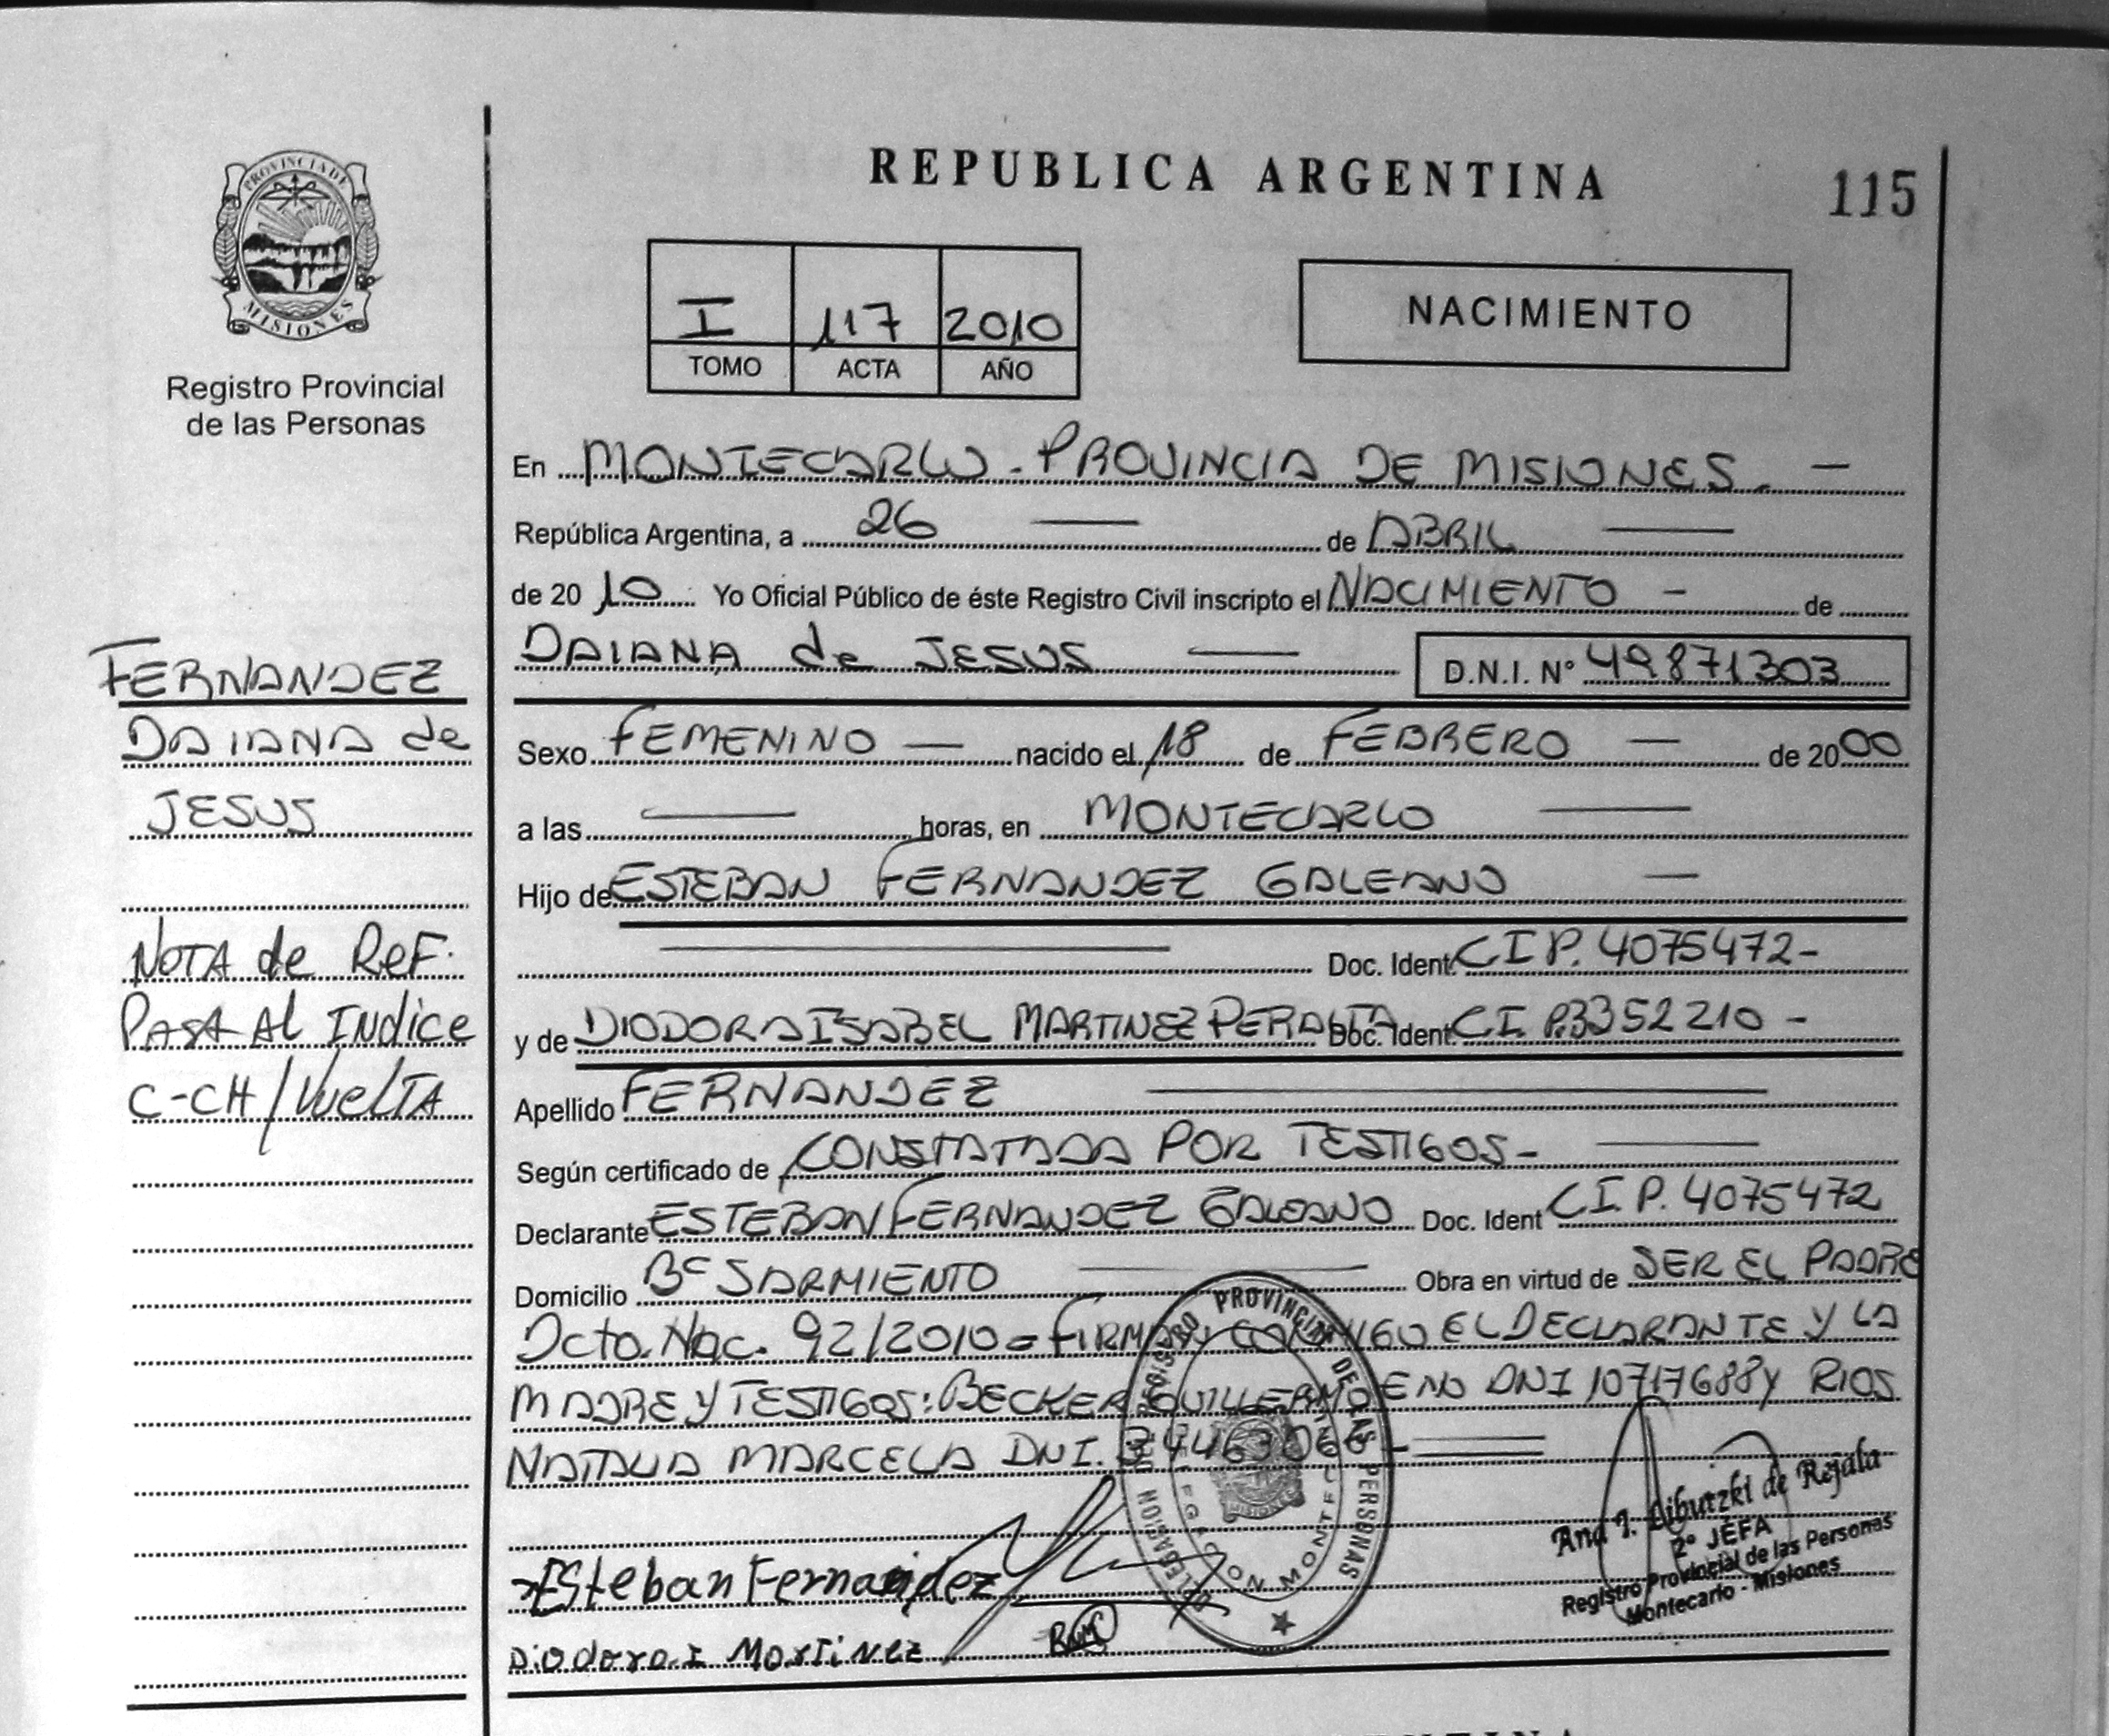 PROVINCIA DE
MISIONES
Registro Provincial
de las Personas
FERNANDEZ
DAIANA de
JESUS
NOTA de REF.
PASA Al INdice
C-CH/VUelTA
REPUBLICA ARGENTINA
115
I 117 2010
TOMO ACTA AÑO
NACIMIENTO
En MONTECARLO - PROVINCIA DE MISIONES. —
República Argentina, a 26 — de ABRIL —
de 20 10 Yo Oficial Público de éste Registro Civil inscripto el NACIMIENTO - de
DAIANA de JESUS — D.N.I. N° 49871303
Sexo FEMENINO — nacido el 18 de FEBRERO — de 2000
a las — horas, en MONTECARLO —
Hijo de ESTEBAN FERNANDEZ GALEANO —
— Doc. Ident. C I P. 4075472-
y de DIODORA ISABEL MARTINEZ PERALTA Doc. Ident. C I. P.3352210 -
Apellido FERNANDEZ —
Según certificado de CONSTATADA POR TESTIGOS- —
Declarante ESTEBAN FERNANDEZ GALEANO Doc. Ident C I. P. 4075472
Domicilio Bº SARMIENTO — Obra en virtud de SER EL PADRE
Dcto. Nac. 92/2010 = FIRMAN CONMIGO EL DECLARANTE Y LA
MADRE Y TESTIGOS: BECKER GUILLERMO ENO DNI 10717688 y RIOS
NATALIA MARCELA DNI. 34463066 -
Esteban Fernandez
Diodora I Martinez
RNM
REGISTRO PROVINCIAL DE LAS PERSONAS
DELEGACION MONTECARLO
MISIONES
Ana I. de Rejala
2º JEFA
Registro Provincial de las Personas
Montecarlo - Misiones